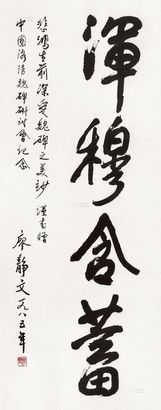 渾穆含蓄
悲鴻生前深愛魏碑之美妙 謹書贈
中國洛陽魏碑研討會紀念
廖静文一九八五年